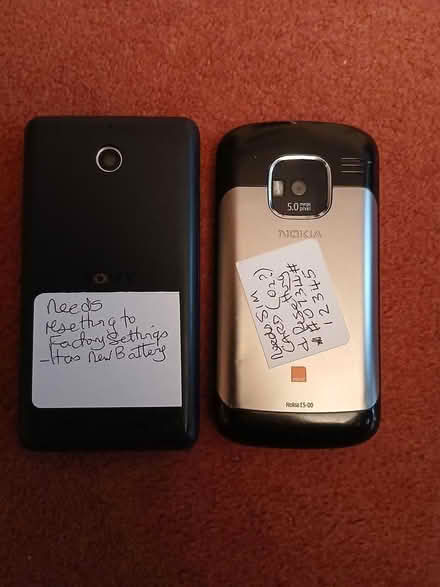 SONY
Needs
resetting to
Factory Settings
- Has New Battery
5.0 mega
pixel
NOKIA
Needs Sim
Card
Reset
12345
Nokia E5-00